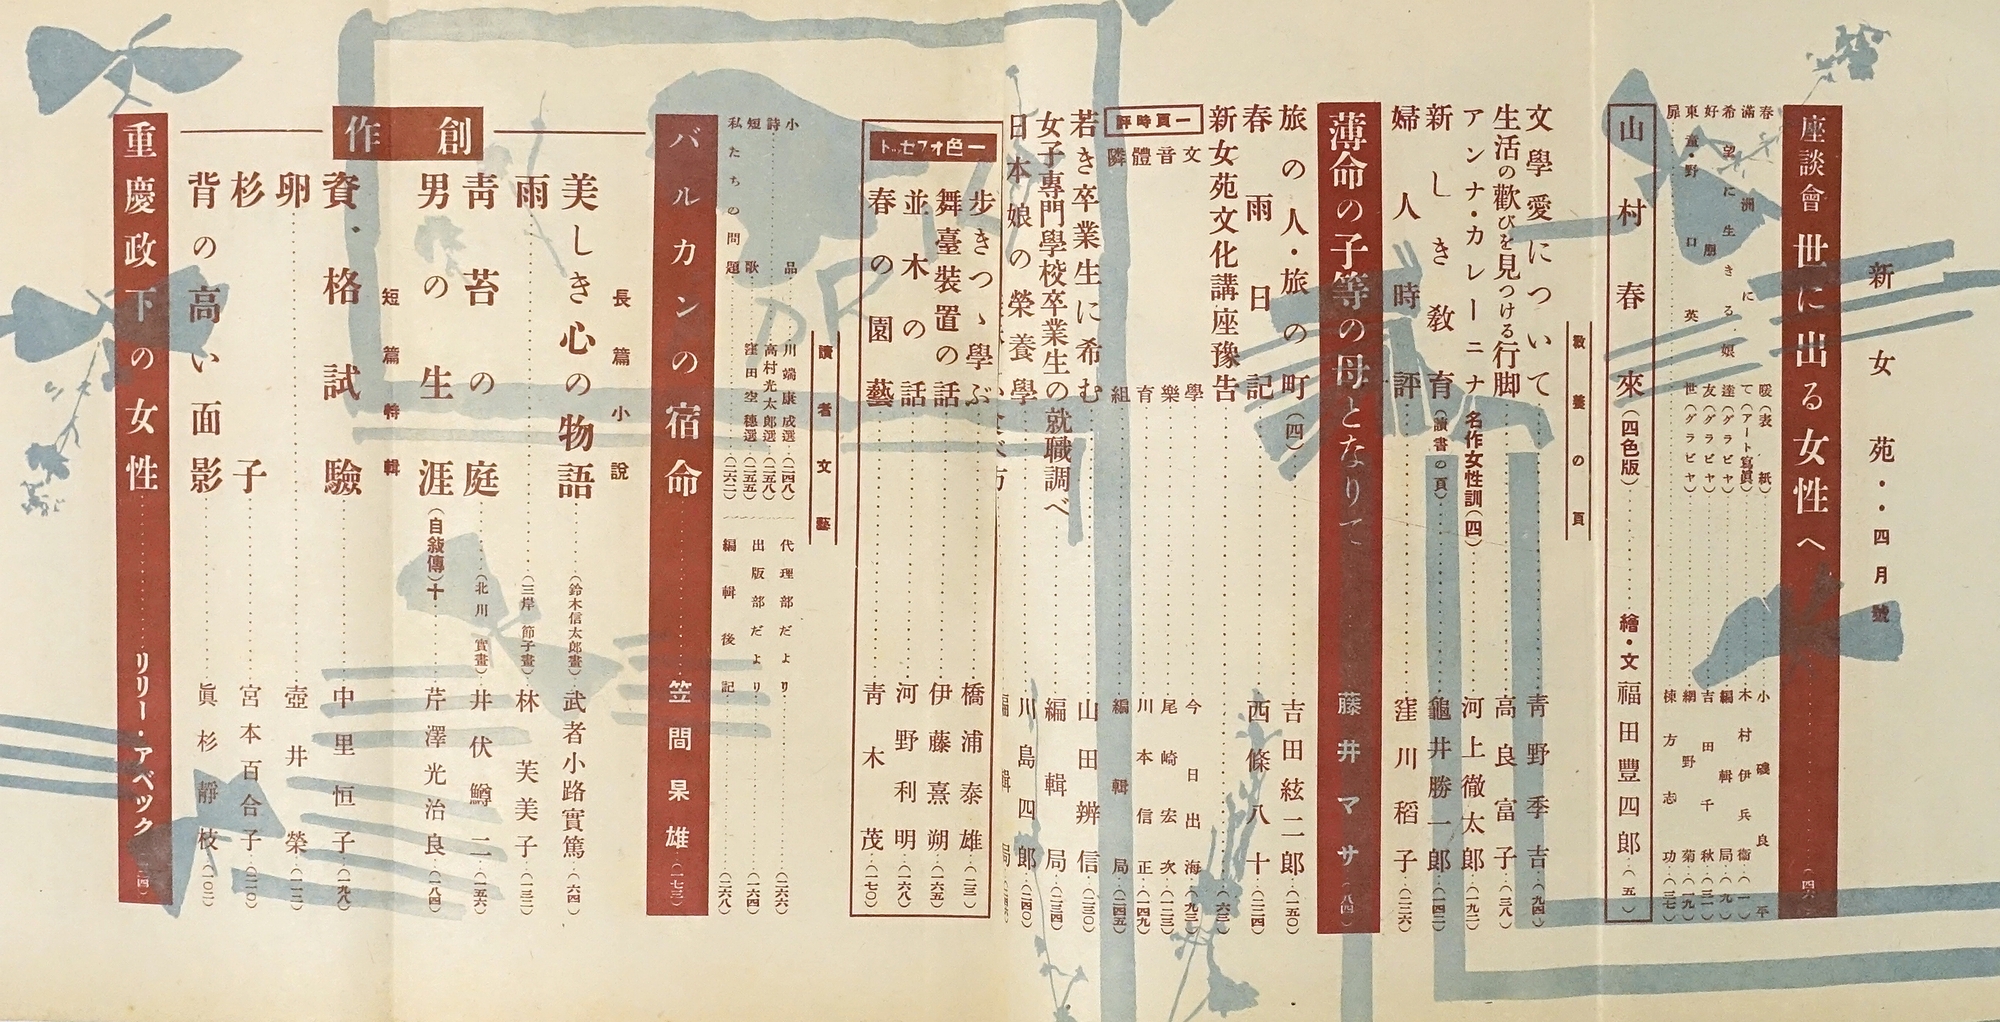 新女苑・・四月號
座談會 世に出る女性へ
春
滿洲に
希望に生きる娘達
好朋友
東西
扉
山村春來(四色版)……繪・文 福田豐四郎(五)
教養の頁
文學愛について……靑野季吉(九四)
生活の歡びを見つける行脚……高良富子(三八)
アンナ・カレーニナ 名作女性訓(四)……河上徹太郎(一九二)
新しき敎育(讀書の頁)……龜井勝一郎(一四二)
婦人時評……窪川稻子(二二六)
薄命の子等の母となりて……藤井マサ(八四)
旅の人・旅の町(四)……吉田絃二郎(一五〇)
春雨日記……西條八十(二二四)
新女苑文化講座豫告
一頁時評
文學……今日出海
音樂……尾崎宏次(一二三)
體育……川本信正(一四九)
隣組……編輯局(二四五)
若き卒業生に希む……山田辨信(二三〇)
女子專門學校卒業生の就職調べ……編輯局(二三四)
日本娘の榮養學……川島四郎(二四〇)
一色オフセット
歩きつゝ學ぶ……橋浦泰雄
舞臺裝置の話……伊藤熹朔(一六五)
並木の話……河野利明(一六八)
春の園藝……靑木茂(一七〇)
讀者文藝
小品……川端康成選(二四八)
詩……高村光太郎選(二五八)
短歌……窪田空穗選(二五五)
私たちの問題……(二六二)
代理部だより……(二六六)
出版部だより……(二六四)
編輯後記……(二六八)
バルカンの宿命……笠間杲雄(一七三)
創作
長篇小說
美しき心の物語……(鈴木信太郎畫)武者小路實篤(六四)
雨……(三岸節子畫)林芙美子(一三二)
靑苔の庭……(北川實畫)井伏鱒二(一五六)
男の生涯(自敍傳)十……芹澤光治良(一八四)
短篇特輯
資・格試驗……中里恒子(一九八)
卵……壺井榮(二一二)
杉子……宮本百合子(二二〇)
背の高い面影……眞杉靜枝(一〇二)
重慶政下の女性……リリー・アベック